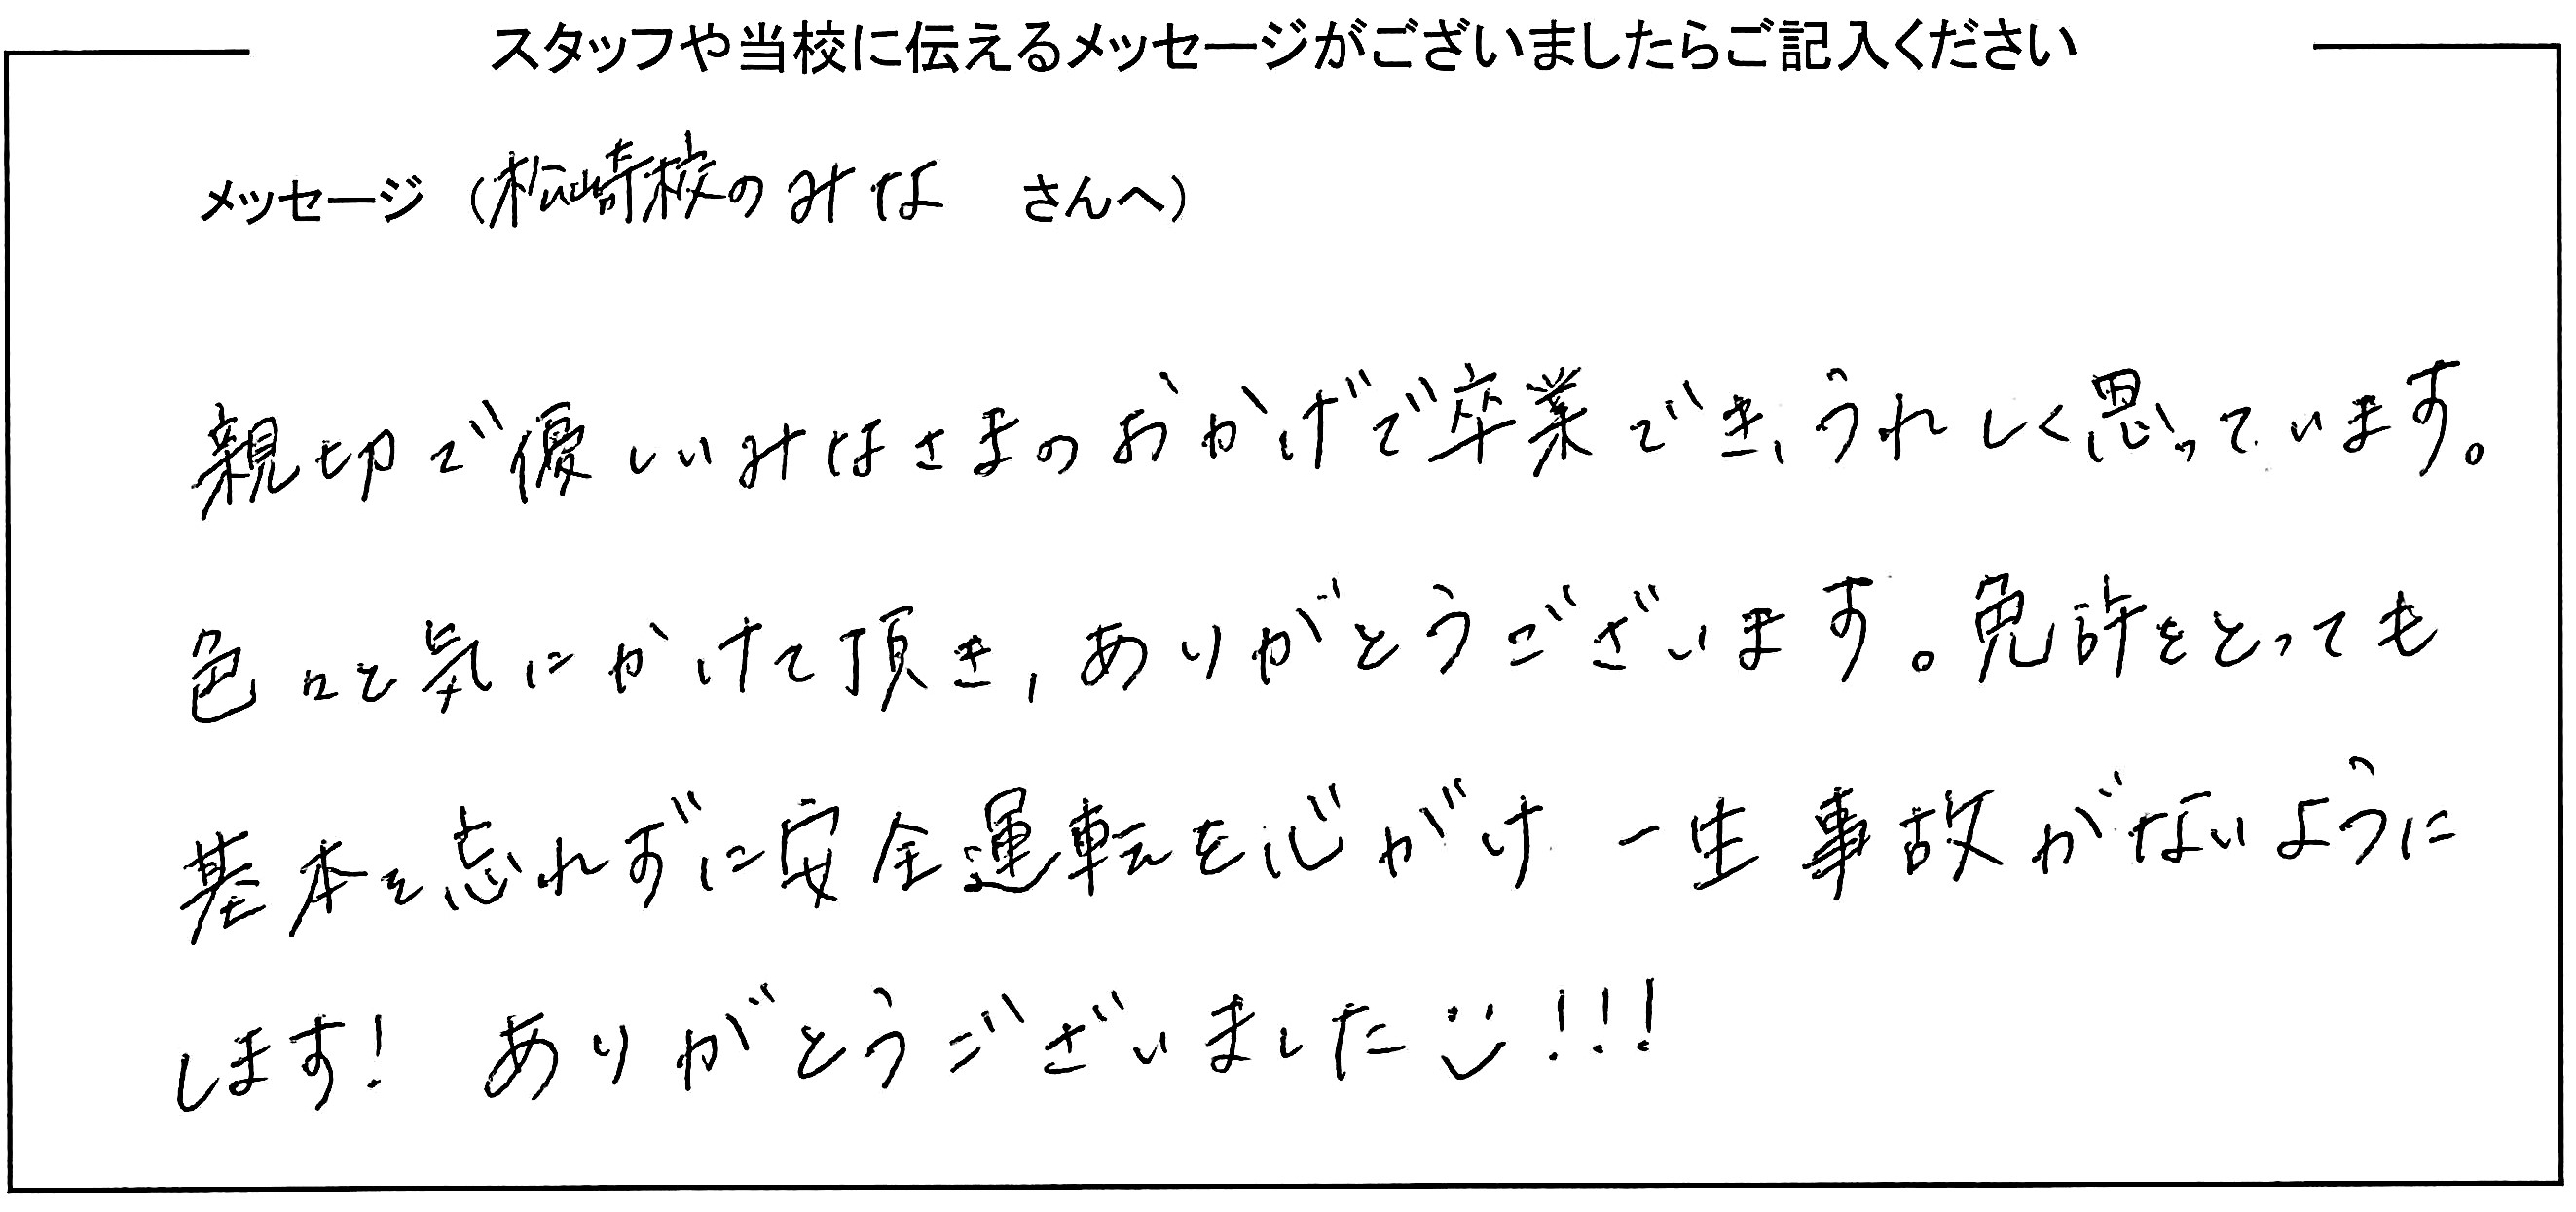 スタッフや当校に伝えるメッセージがございましたらご記入ください
メッセージ（松崎校のみな さんへ）
親切で優しいみなさまのおかげで卒業でき、うれしく思っています。
色々と気にかけて頂き、ありがとうございます。免許をとっても
基本を忘れずに安全運転を心がけ 一生事故がないように
します! ありがとうございました!!!